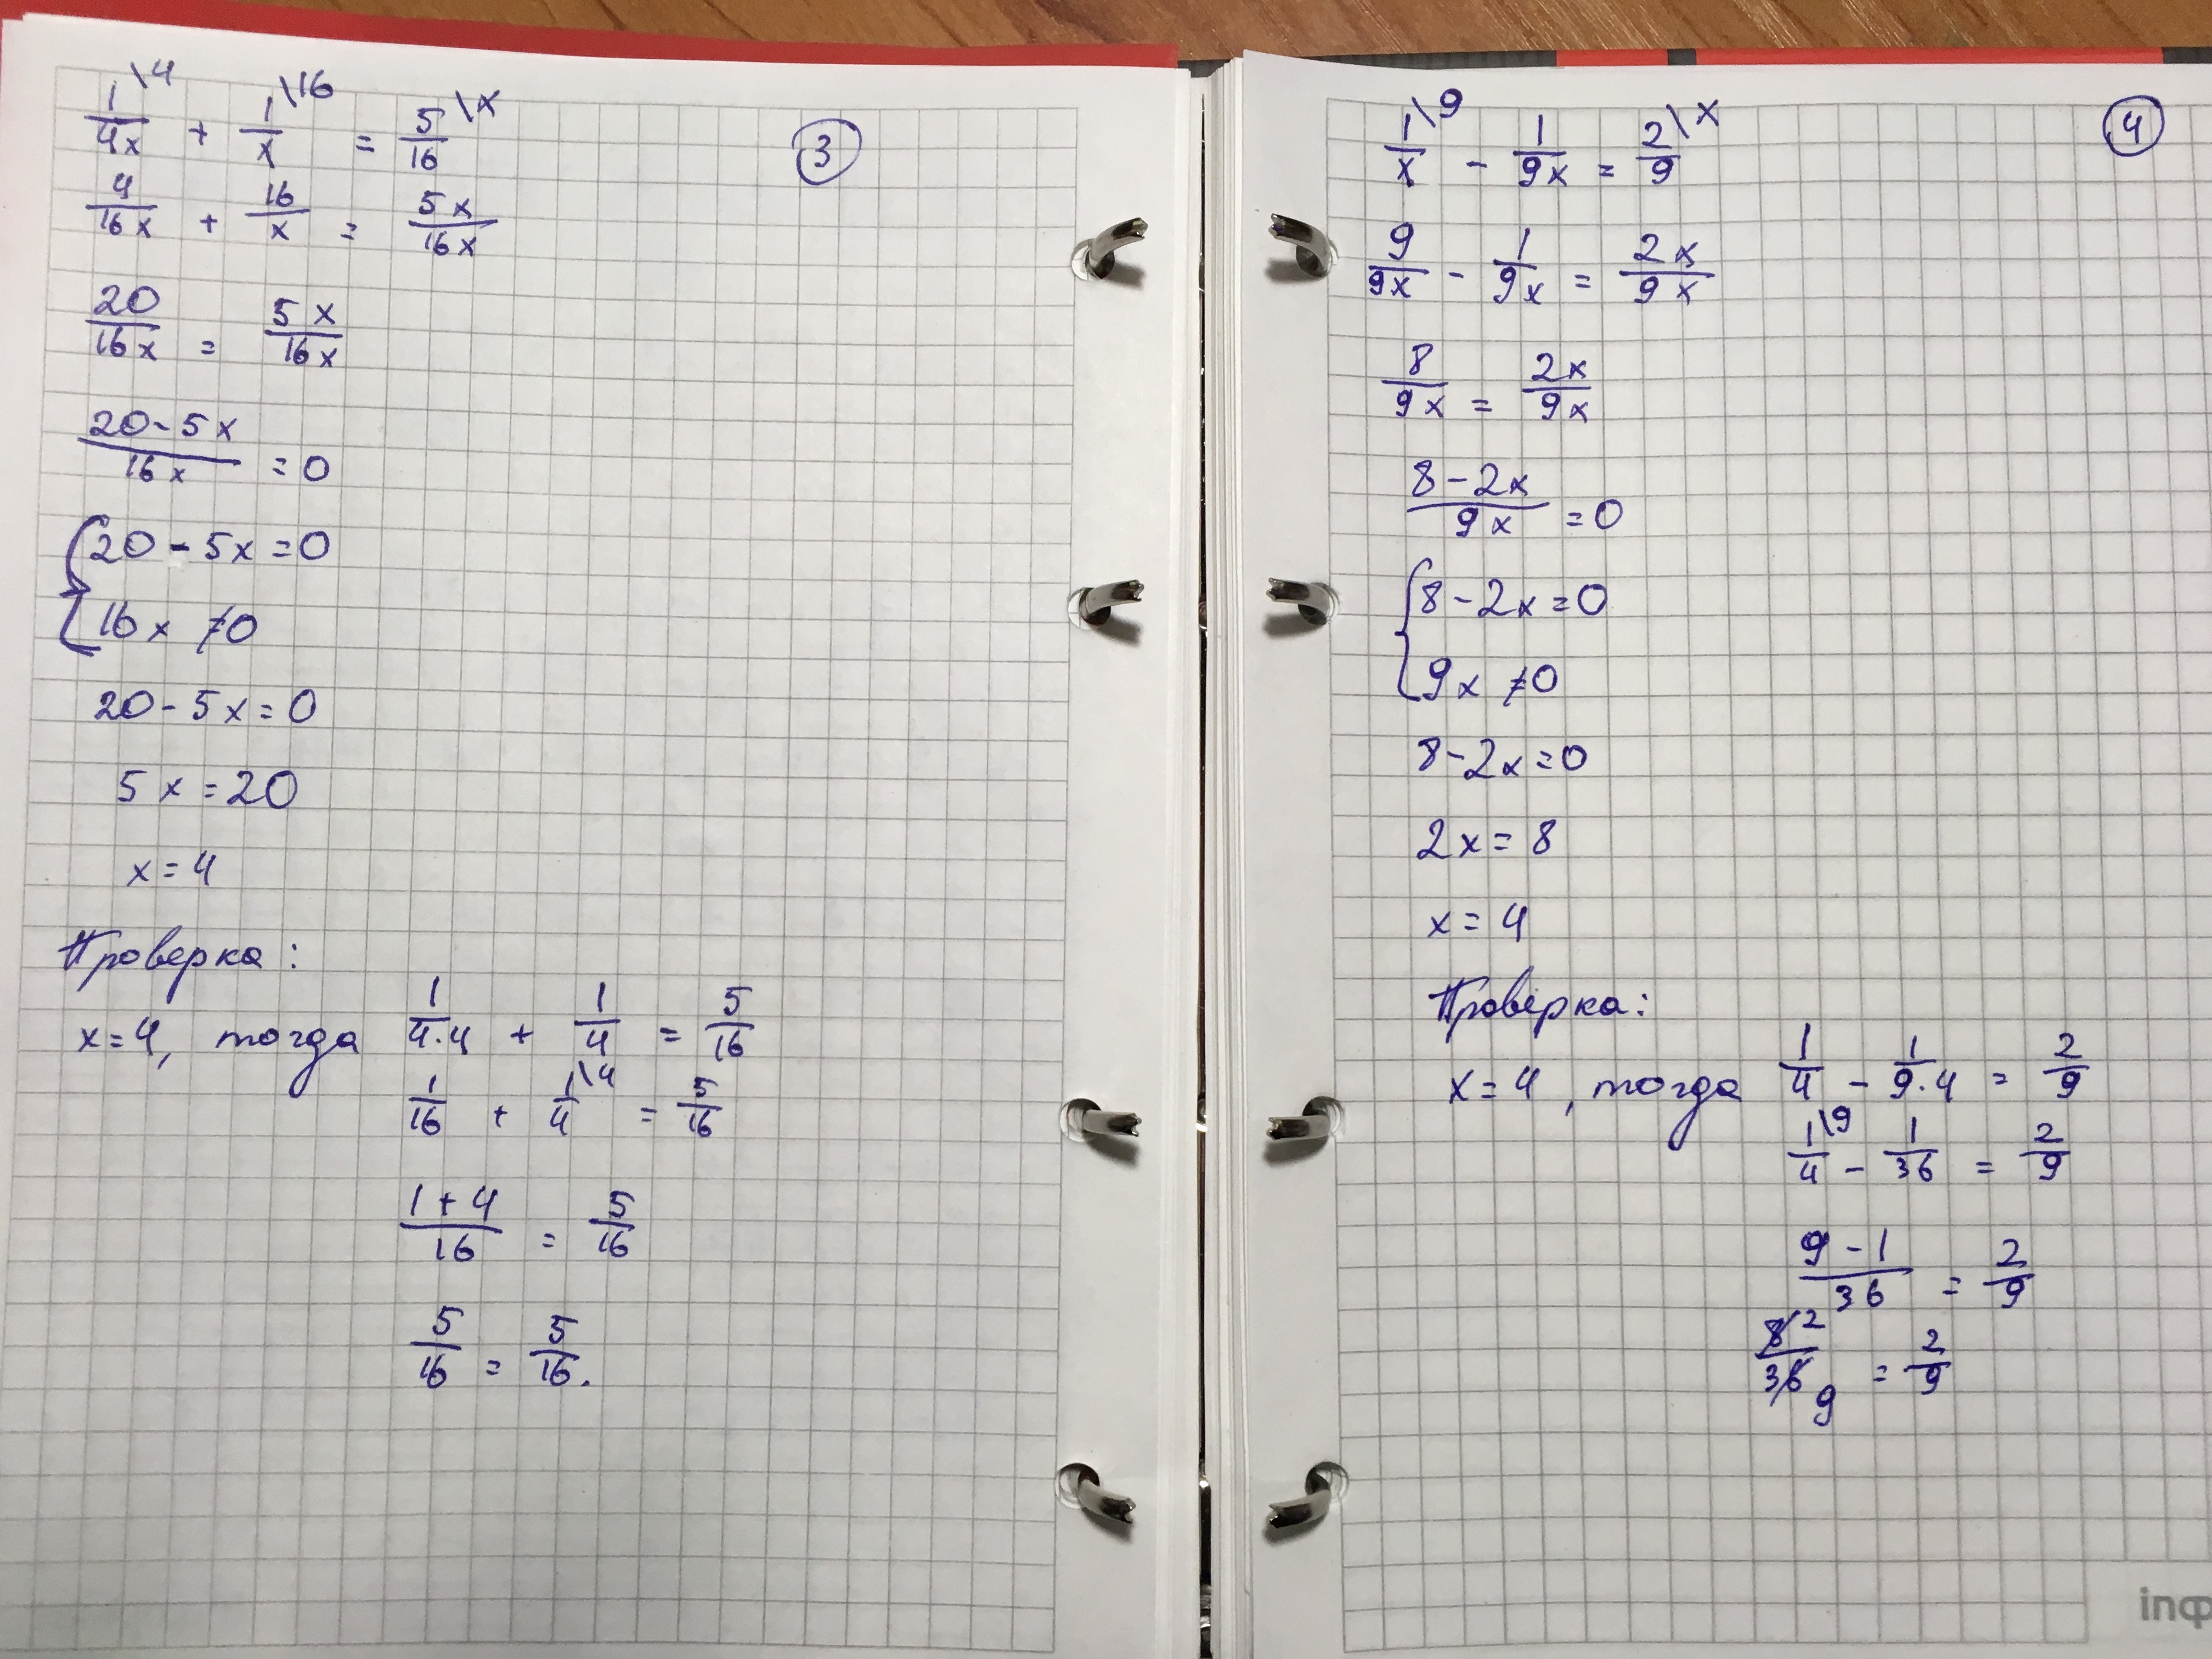 ③
1/4x \4 + 1/x \16 = 5/16 \x
4/16x + 16/x = 5x/16x
20/16x = 5x/16x
(20-5x)/16x = 0
{20-5x=0
16x≠0
20-5x=0
5x=20
x=4
Проверка:
x=4, тогда 1/(4·4) + 1/4 = 5/16
1/16 + 1/4 \4 = 5/16
(1+4)/16 = 5/16
5/16 = 5/16.
④
1/x \9 - 1/9x = 2/9 \x
9/9x - 1/9x = 2x/9x
8/9x = 2x/9x
(8-2x)/9x = 0
{8-2x=0
9x≠0
8-2x=0
2x=8
x=4
Проверка:
x=4, тогда 1/4 - 1/(9·4) = 2/9
1/4 \9 - 1/36 = 2/9
(9-1)/36 = 2/9
8/36 2 9 = 2/9